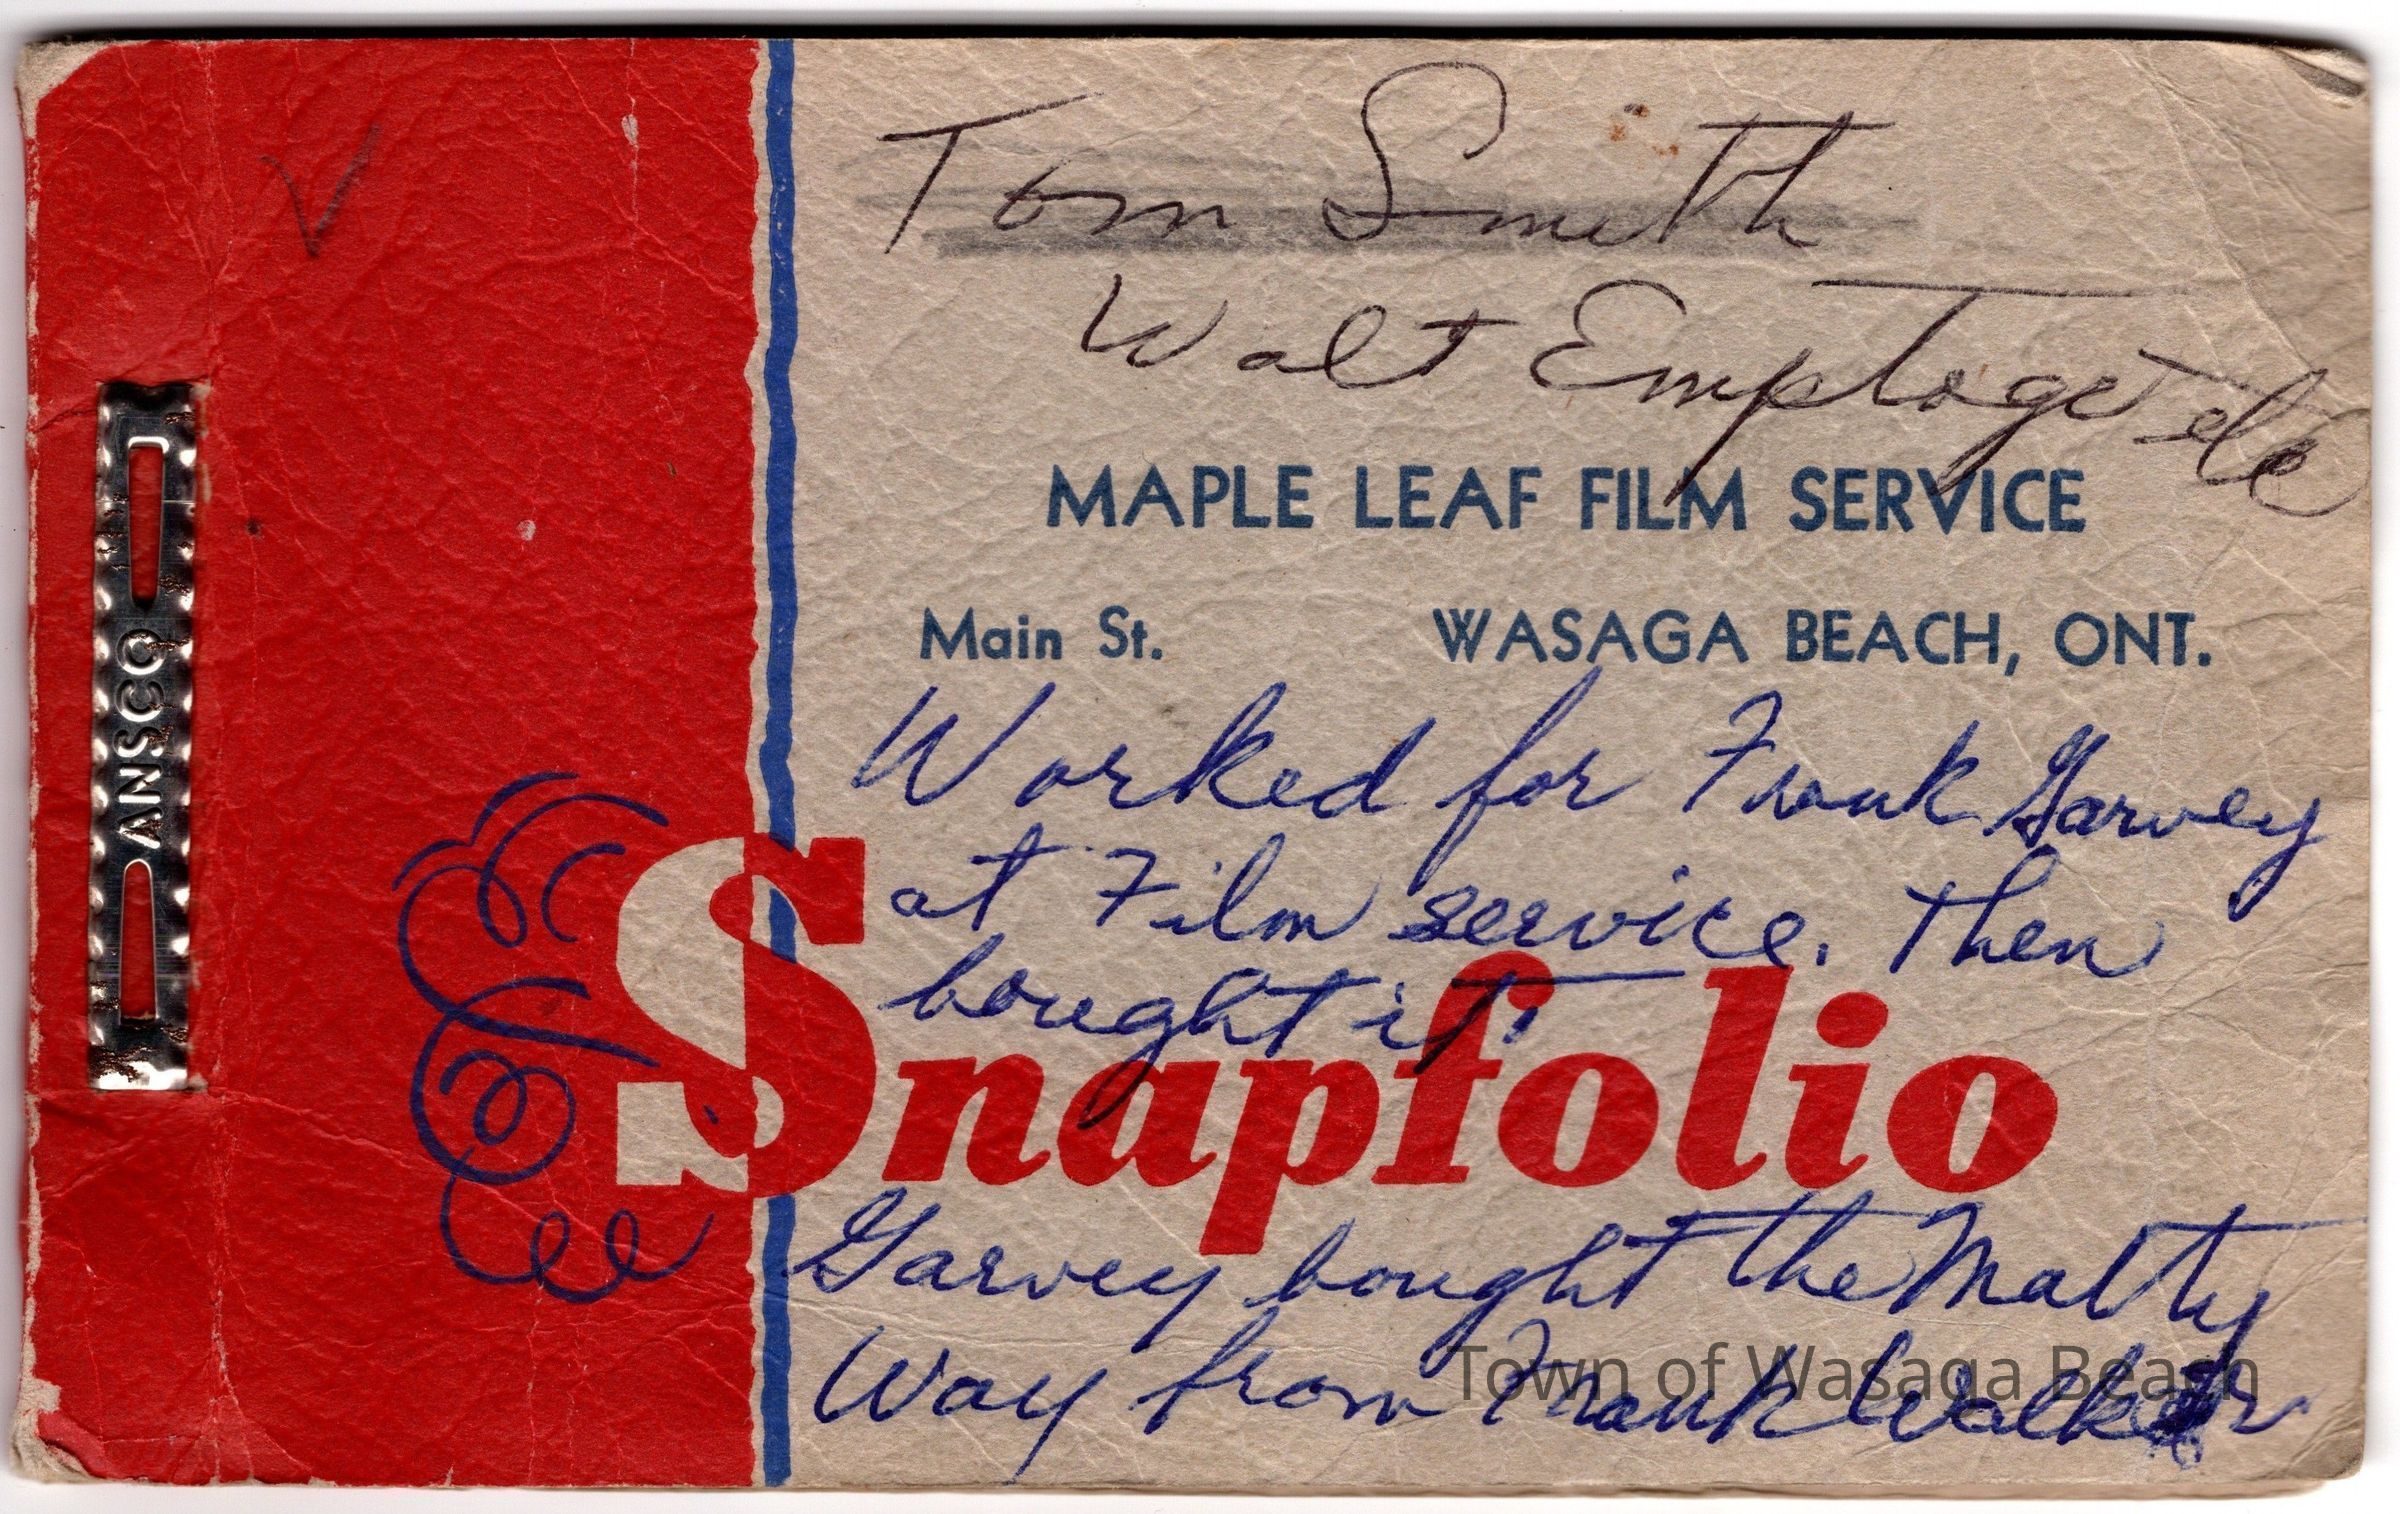 Tom Smith
Walt
MAPLE LEAF FILM SERVICE
Main St. WASAGA BEACH, ONT.
Worked for Frank Garvey
at Film service. Then
bought it.
Snapfolio
Garvey bought the Malty
Way from Frank Walker
Town of Wasaga Beach
ANSCO